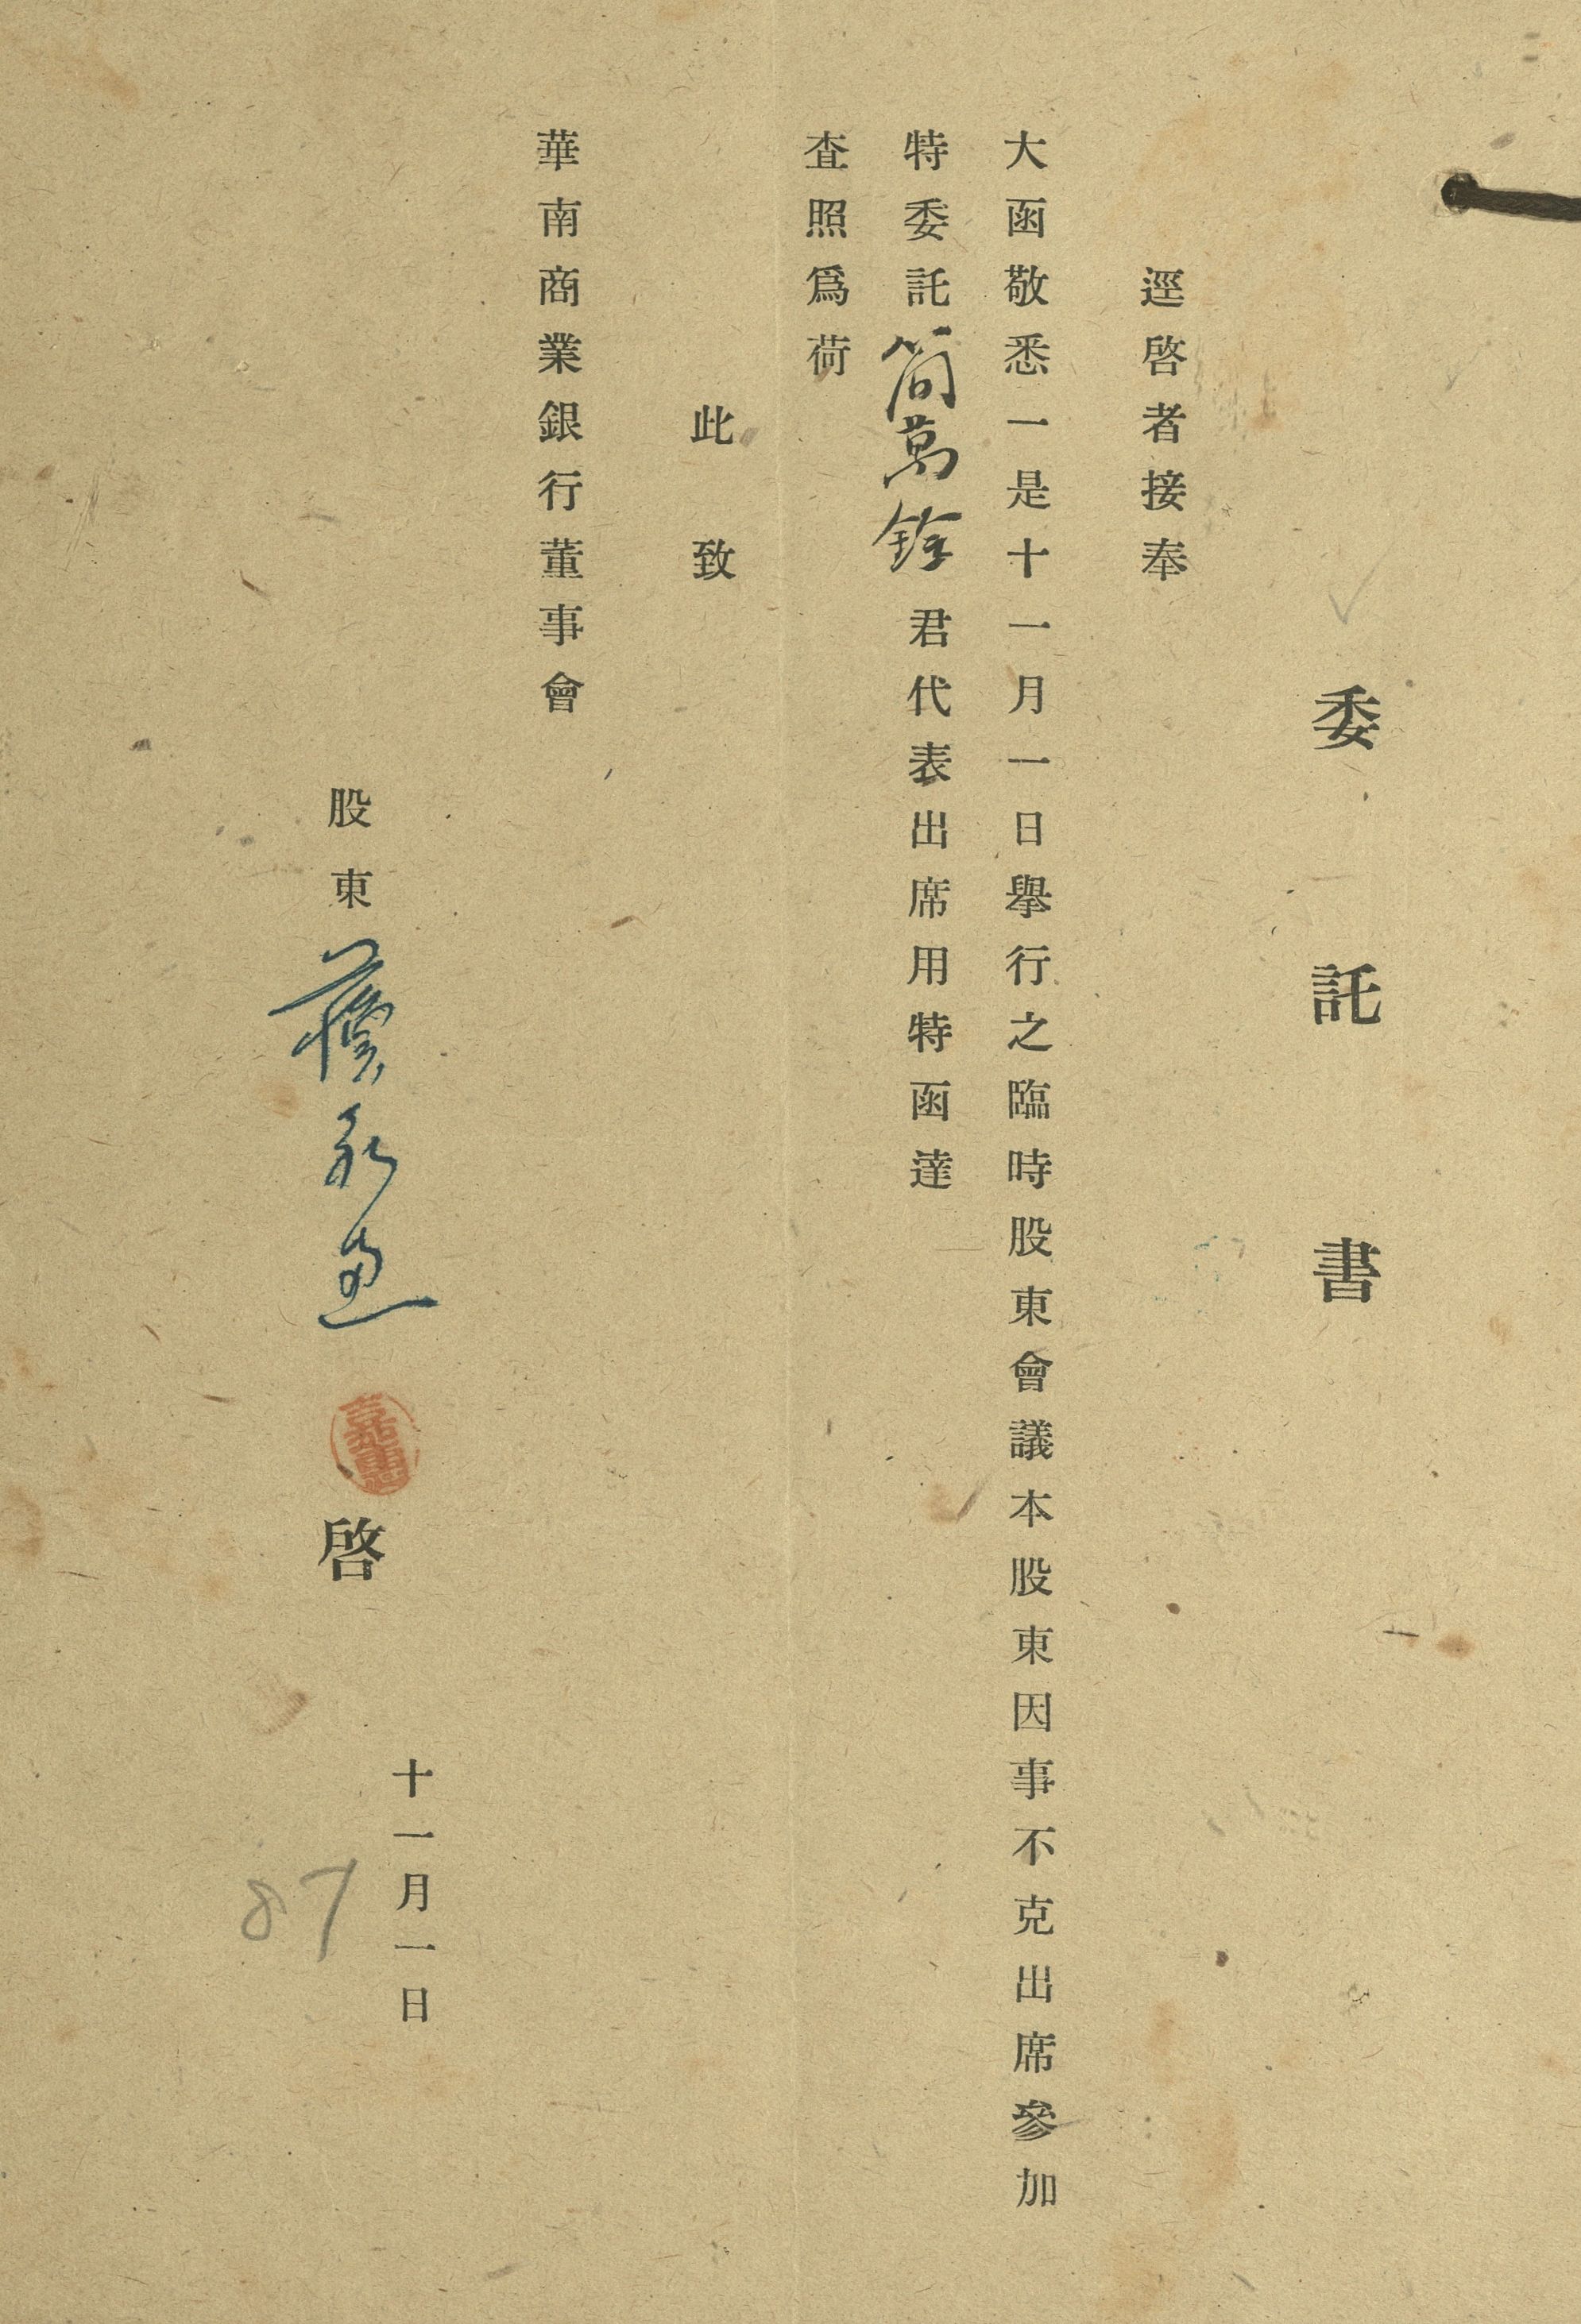 委託書
逕啓者接奉
大函敬悉一是十一月一日舉行之臨時股東會議本股東因事不克出席參加
特委託簡萬銓君代表出席用特函達
査照爲荷
此致
華南商業銀行董事會
股東 啓
嘉惠
十一月一日
87